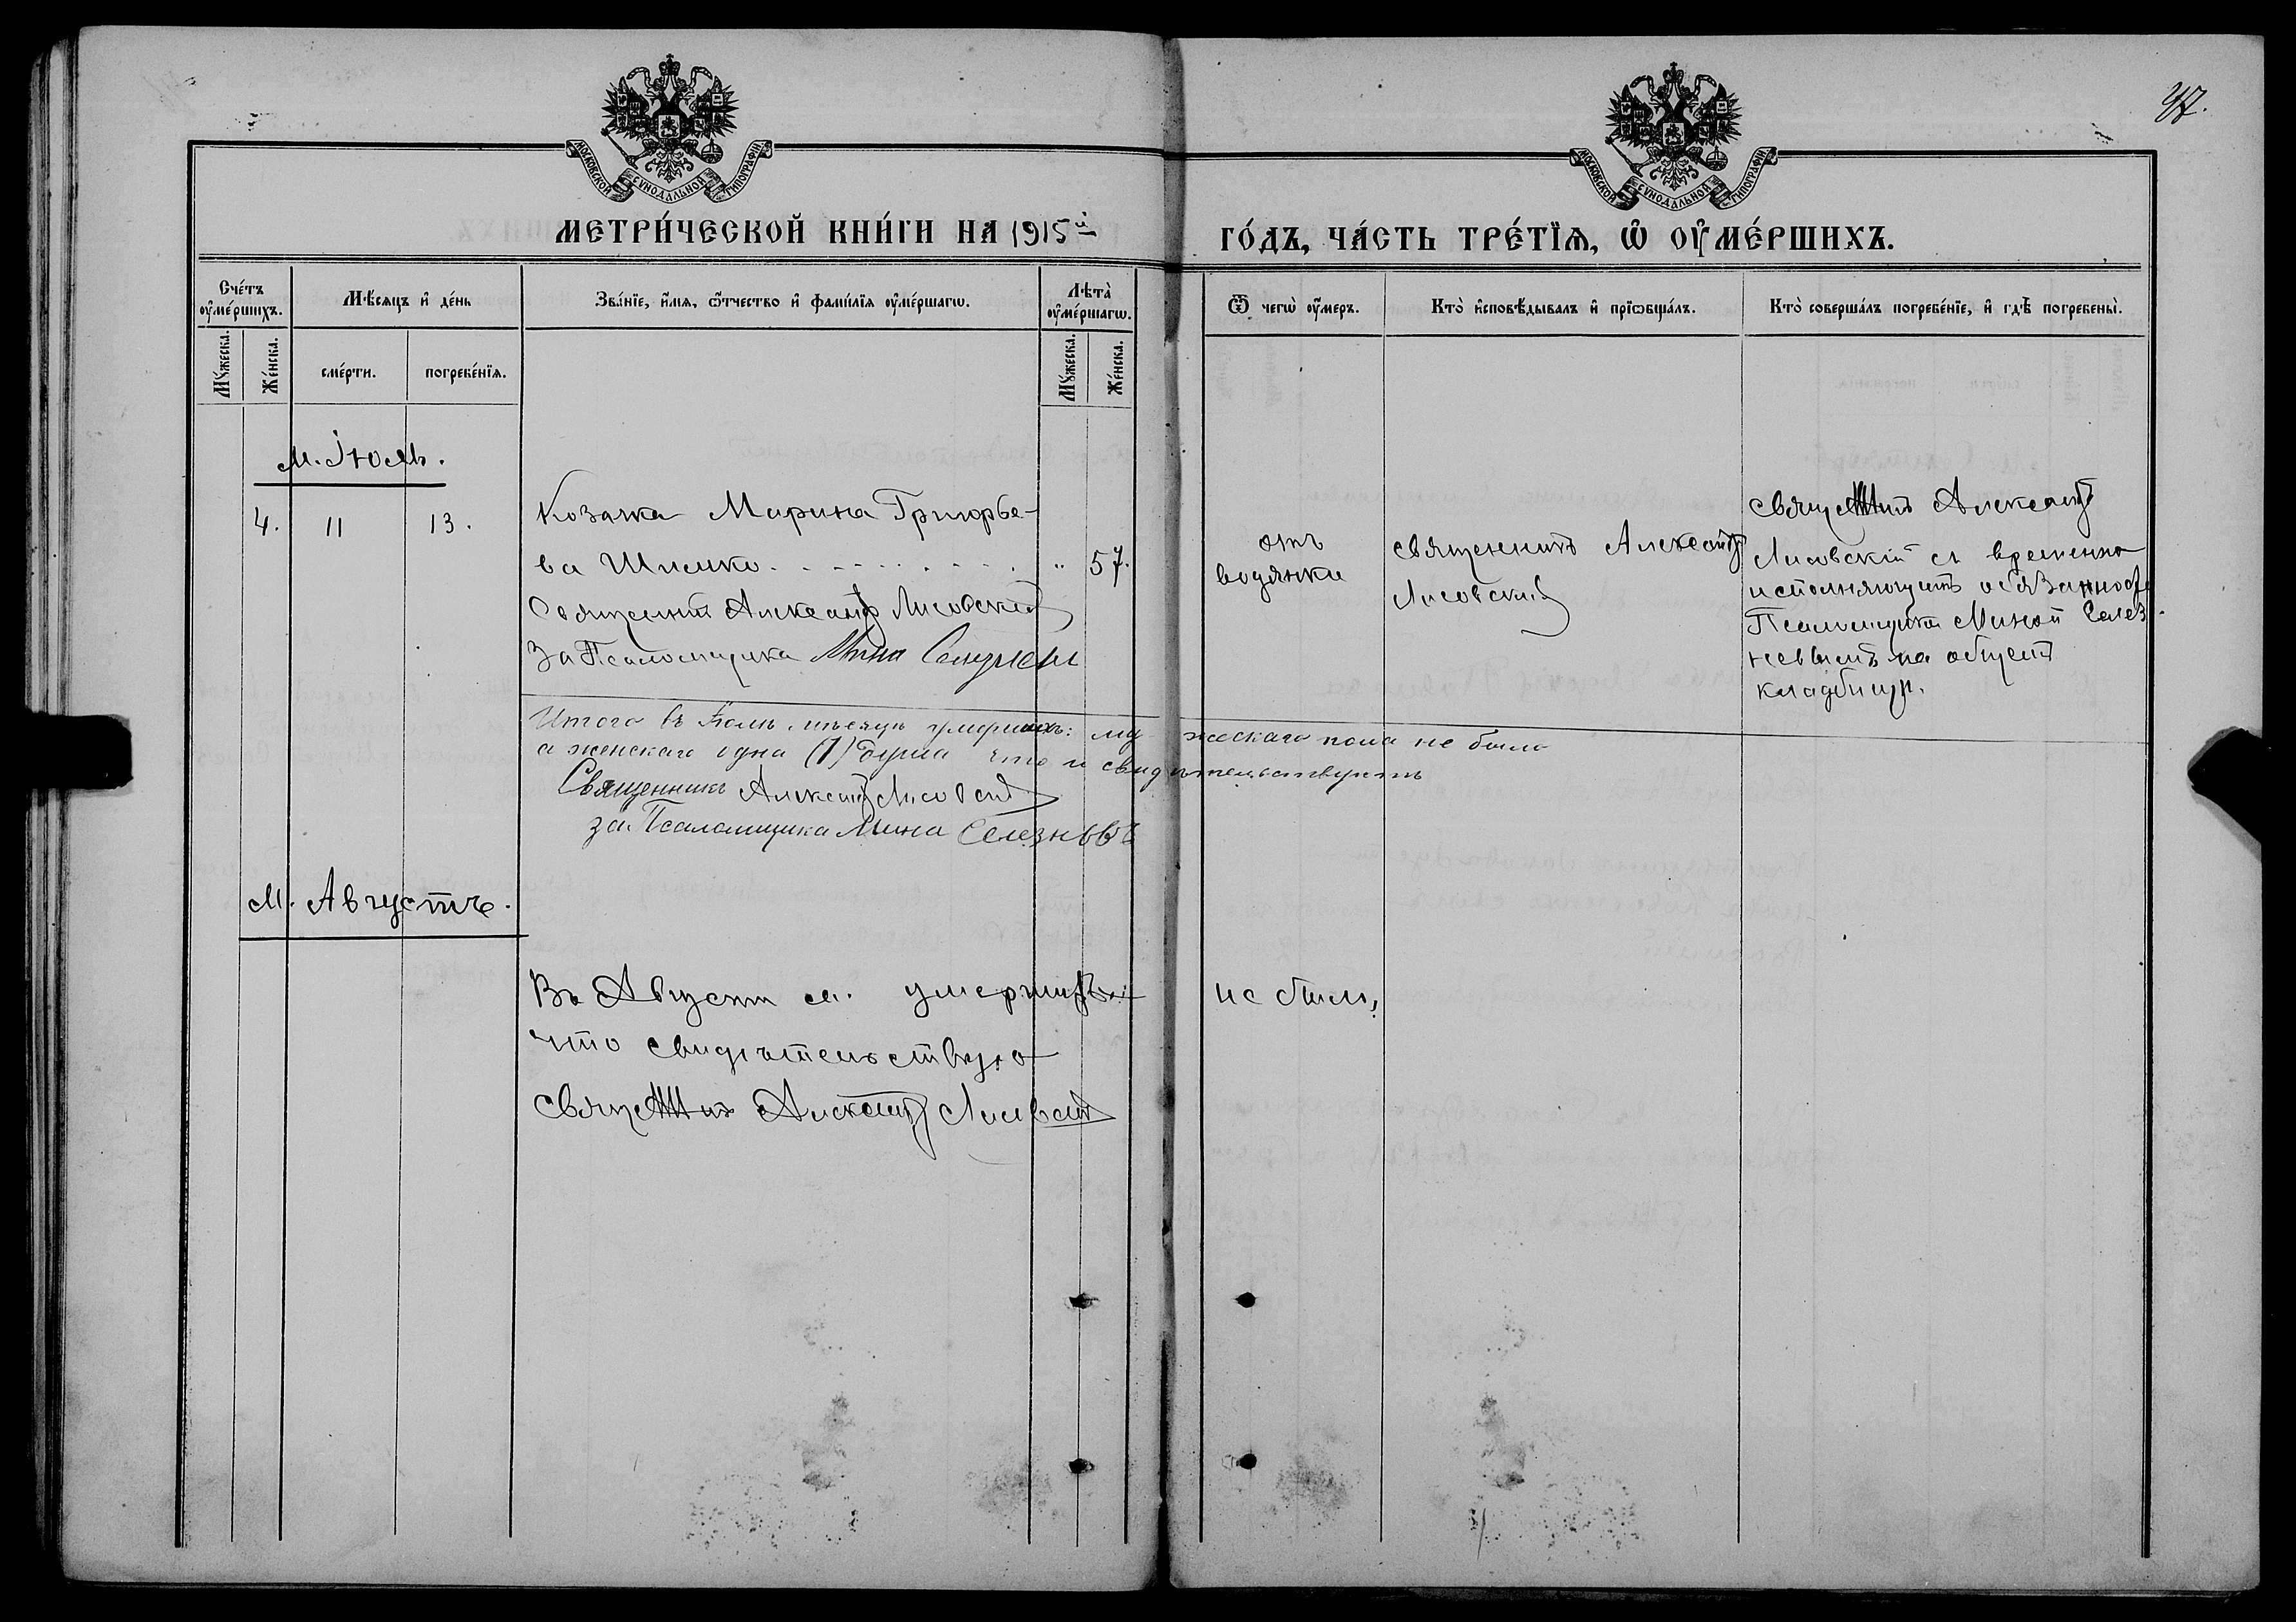 47.
МОСКОВСКОЙ СѴНОДАЛЬНОЙ ТИПОГРАФІИ
МОСКОВСКОЙ СѴНОДАЛЬНОЙ ТИПОГРАФІИ
МЕТРИ́ЧЕСКОЙ КНИ́ГИ НА 1915й ГО́ДЪ, ЧА́СТЬ ТРЕ́ТЇѦ, Ѡ҆ ОУ҆МЕ́РШИХЪ.
Сче́тъ оу҆ме́ршихъ.
Мꙋ́жеска.
Же́нска.
Мѣ́сяцъ и҆ де́нь
сме́рти.
погребе́нїѧ.
Зва́нїе, и҆́мѧ, ѻ҆́тчество и҆ фами́лїѧ оу҆ме́ршагѡ.
Лѣта̀ оу҆ме́ршагѡ.
Мꙋ́жеска.
Же́нска.
Ѿ чегѡ̀ оу҆́меръ.
Кто̀ и҆сповѣ́дывалъ и҆ прїѡбща́лъ.
Кто̀ соверша́лъ погребе́нїе, и҆ гдѣ̀ погребены̀.
М. Іюль.
4. 11 13.
Козачка Марина Григорье-
ва Шишко . . . . . . . . . " 57.
Священникъ Александръ Лисовскій
За Псаломщика Мина Селезневъ
отъ
водянки
священникъ Александръ
Лисовскій
священникъ Александръ
Лисовскій съ временно
исполняющимъ обязанност.
Псаломщика Миной Селез
невымъ на общемъ
кладбищѣ.
Итого въ Іюлѣ мѣсяцѣ умершихъ: мужескаго пола не было
а женскаго одна (1) душа что и свидѣтельствуютъ
Священникъ Александръ Лисовскій
за Псаломщика Мина Селезнёвъ
М. Августъ.
Въ Августѣ м. умершихъ не было,
что свидѣтельствую
священникъ Александръ Лисовскій